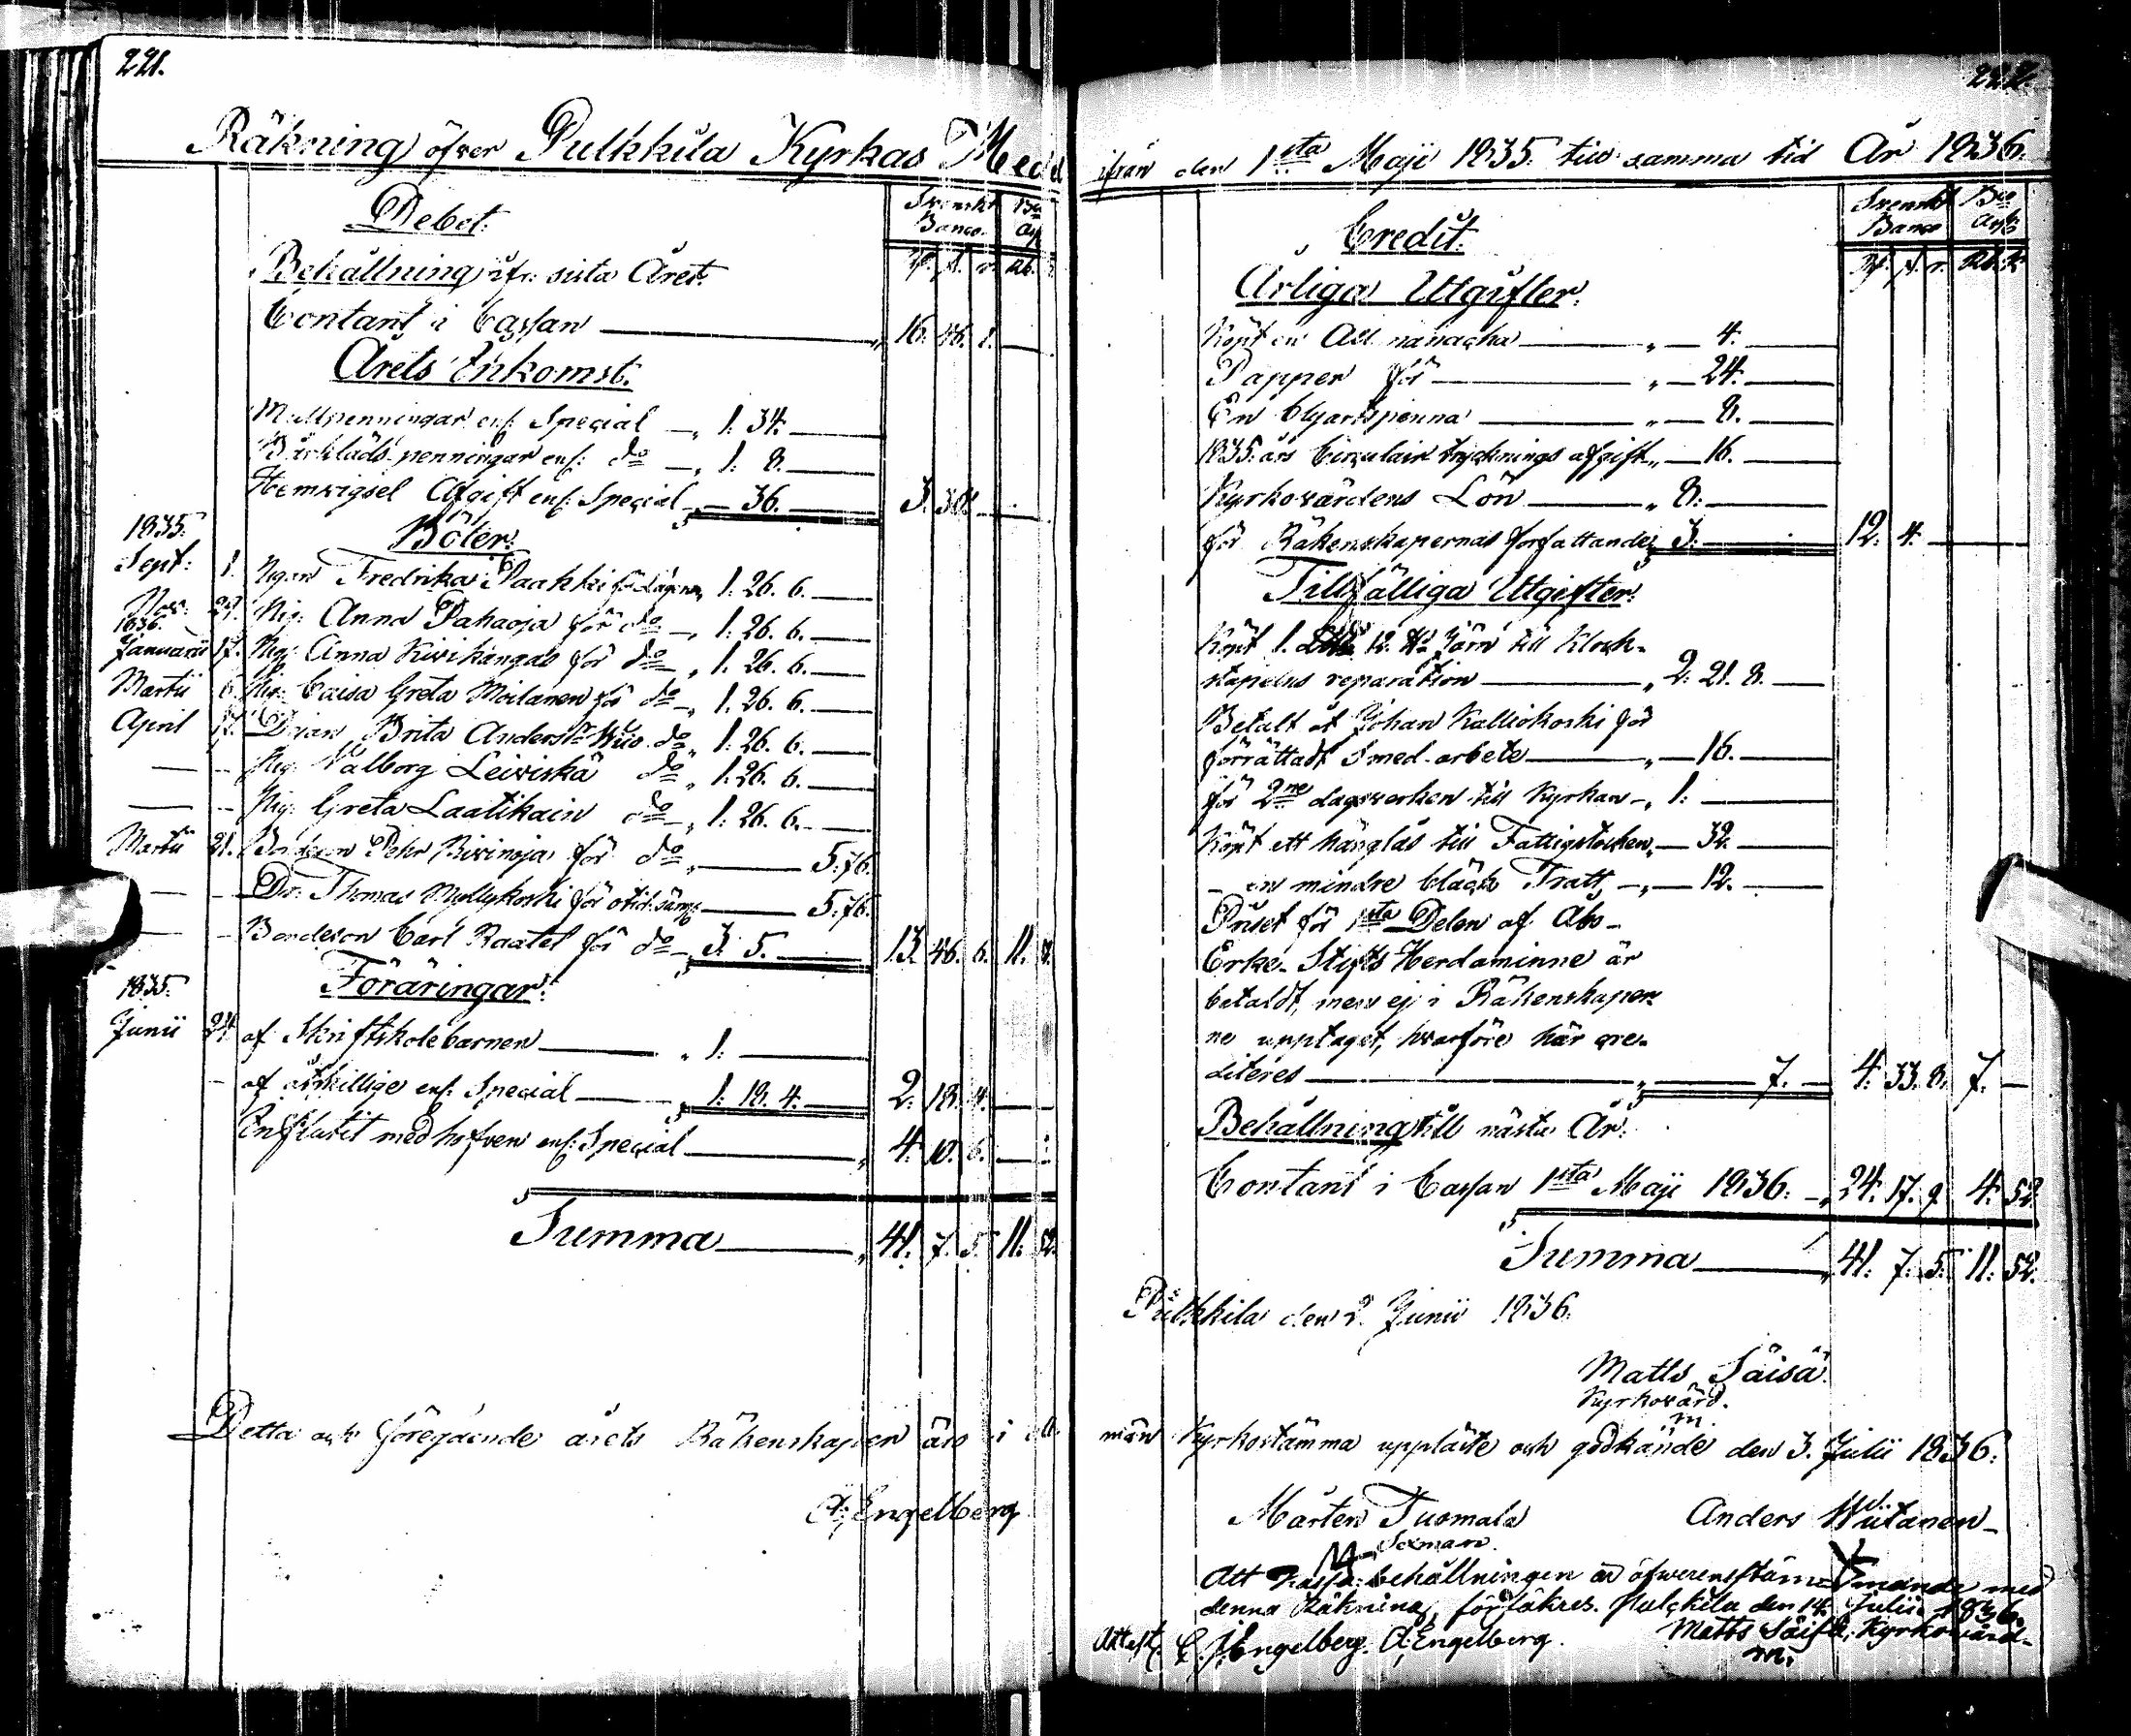 221.
Räkning öfver Pulkkila Kyrkas Med
Debet.
Svenskt Banco.
Behållning ifr: sista Året.
Contant i Cassan „ 16. 46. 1. —
Årets Inkomst.
Mullpenningar enl: Special „ 1. 34. —
Bårkläds-penningar enl: do „ 1. 8. —
Hemvigsel Afgift enl: Special „ — 36. — 3. 30. —
1835.
Böter.
Sept: 1. Pigan Fredrika Paakki för Lägersm. 1. 26. 6. —
Nov: 29. Pig: Anna Pahaoja för do „ 1. 26. 6. —
1836.
Januarii 17. Pig: Anna Kivikangas för do „ 1. 26. 6. —
Martii 6. Pig: Caisa Greta Moilanen för do „ 1. 26. 6. —
April 17. Brita Anders do „ 1. 26. 6. —
— — Pig: Valborg Leiviskä do „ 1. 26. 6. —
— — Pig: Greta Laatikain do „ 1. 26. 6. —
Martii 21. Bondeson Pehr för do „ — 5. 76.
— — Dr: Thomas Myllykoski för otid: säng — 5. 76.
— — Bondeson Carl Raatel för do „ 3. 5. — 13. 46. 6. 11.
1835.
Föräringar.
Junii 24. af Skriftskolebarnen „ 1. —
— af åtskillige enl: Special „ 1. 18. 4. — 2. 18. 4. —
Influtit med hofven enl: Special „ 4. 10. 6. —
Summa „ 41. 7. 5. 11. 52.
Detta och föregående årets Räkenskaper äro i
A: Engelberg
222.
ifrån den 1sta Maji 1835 till samma tid År 1836.
Credit.
Svenskt Banco
Årliga Utgifter.
Köpt en Allmanacka „ — 4. —
Papper för „ — 24. —
En penna „ — 8. —
1835: års Circulair trycknings afgift „ — 16. —
Kyrkovärdens Lön „ 8. —
för Räkenskapernas författande „ 3. — 12. 4. —
Tillfälliga Utgifter.
Köpt 1. 12. Järn till Klock-
stapelns reparation „ 2. 21. 8. —
Betalt åt Johan Kalliokoski för
förrättadt Smed-arbete „ — 16. —
för 2ne dagsverken till Kyrkan „ 1. —
Köpt ett hänglås till Fattigstocken „ — 32. —
— en mindre bläck Tratt „ — 12. —
Priset för 1sta Delen af Åbo-
Erke-Stifts Herdaminne är
betaldt, men ej i Räkenskaper-
ne upptaget, hvarföre här cre-
diteres „ — 7. — 4. 33. 8. 7. —
Behållning till nästa År.
Contant i Cassan 1sta Maji 1836. „ 24. 17. 9. 4. 52.
Summa „ 41. 7. 5. 11. 52.
Pulkkila den 2. Junii 1836.
Matts Säisä.
Kyrkovärd.
m.
män Kyrkostämma uppläste och godkände den 3. Julii 1836.
Mårten Tuomala Anders Wiitanen
Sexman.
Att Kassa behållningen är öfwerensstämmande med
denna Räkning, försäkres. Pulckila den 14. Julii 1836.
Attest: C. J. Engelberg. A: Engelberg. Matts Säisä, Kyrkovärd.
m.